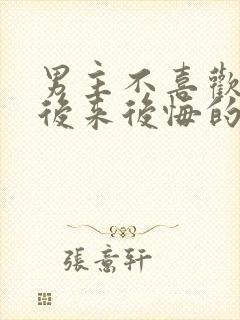 男主不喜歡
後來後悔的
張意軒